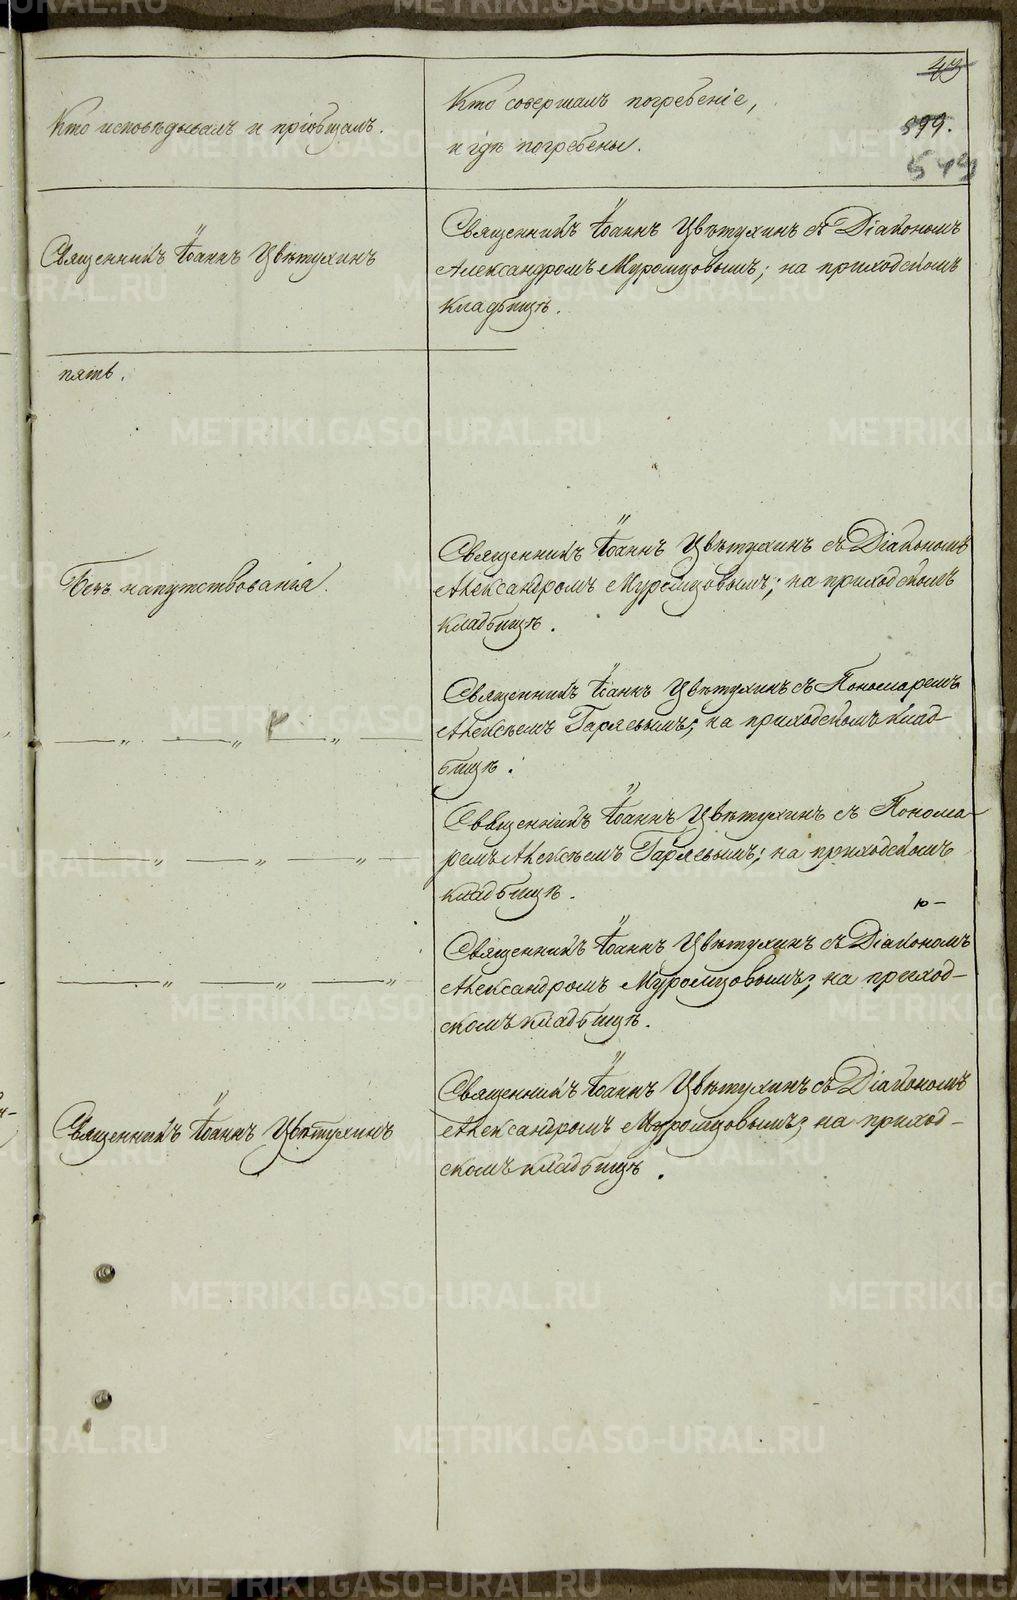 43
599.
549
Кто исповѣдывалъ и пріобщалъ.
Кто совершалъ погребеніе,
и гдѣ погребены.
Священникъ Іоаннъ Цвѣтухинъ
Священникъ Іоаннъ Цвѣтухинъ съ Діакономъ
Александромъ Муромцовымъ; на приходскомъ
кладбищѣ.
пять.
Безъ напутствованія.
Священникъ Іоаннъ Цвѣтухинъ съ Діакономъ
Александромъ Муромцовымъ; на приходскомъ
кладбищѣ.
— „ — „ — „ —
Священникъ Іоаннъ Цвѣтухинъ съ Пономаремъ
Алексѣемъ Гаряевымъ; на приходскомъ клад-
бищѣ.
— „ — „ — „ —
Священникъ Іоаннъ Цвѣтухинъ съ Понома-
ремъ Алексѣемъ Гаряевымъ; на приходскомъ
кладбищѣ.
— „ — „ — „
Священникъ Іоаннъ Цвѣтухинъ съ Діакономъ
Александромъ Муромцовымъ; на приход-
скомъ кладбищѣ.
Священникъ Іоаннъ Цвѣтухинъ
Священникъ Іоаннъ Цвѣтухинъ съ Діакономъ
Александромъ Муромцовымъ; на приход-
скомъ кладбищѣ.